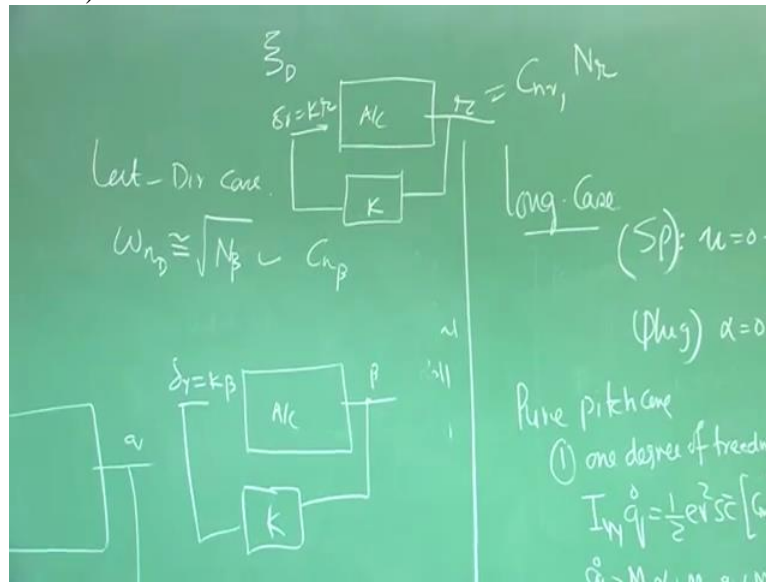 ξ_D
δr = Kr
A/c
r = C_nr, N_r
K
Lat-Dir Case.
ω_nD ≅ √N_β ~ C_nβ
δr = Kβ
A/c
β
K
q
Long. Case
(SP): u = 0
(Phug) α = 0
Pure pitch case
① one degree of freedom
I_yy q̇ = 1/2 ρv² s c̄ [C